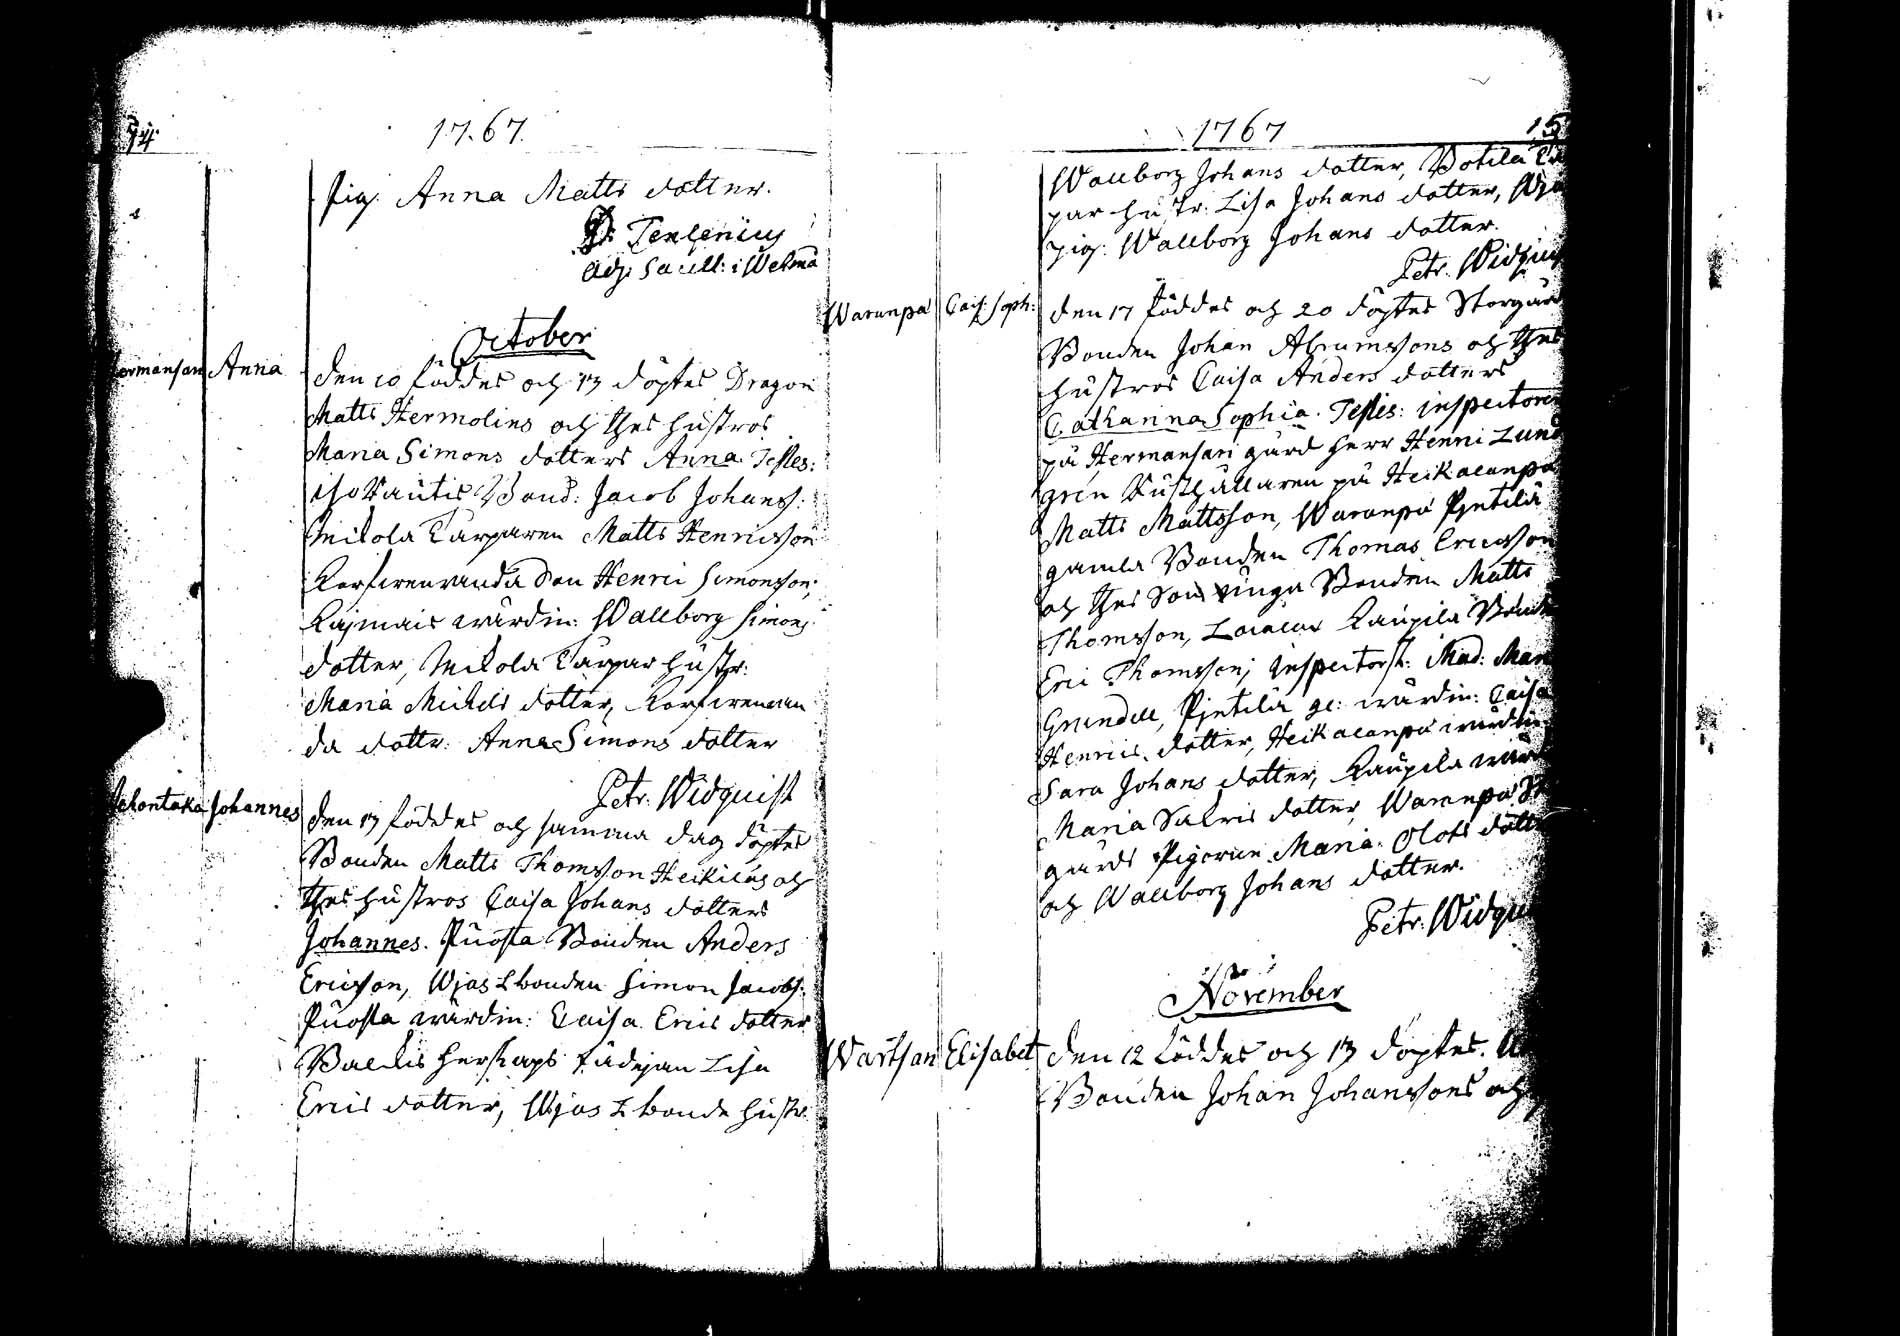 74
1767.
pig. Anna Matts dotter.
D. Tenlenius
Adj: Sacell: i Wehma
October
Hermansari Anna
den 10 föddes och 13 döptes Dragon
Matts Hermolins och thes hustros
Maria Simons dotters Anna. Testes:
Isotautis Bond: Jacob Johanss:
Mikola Tarparen Matts Henricsson
Henric Simonsson;
wärdin: Wallborg Simons
dotter, Mikola Tarpar hustr:
Maria Michels dotter,
da dottr: Anna Simons dotter
Petr. Widquist
Johannes
den 13 föddes och samma dag döptes
Bonden Matts Thomsson Heikiläs och
thes hustros Caisa Johans dotters
Johannes. Puosta Bonden Anders
Ericsson, Wjas Lbonden Simon Jacobs:
Puosta wärdin: Caisa Erics dotter
herskaps Lisa
Erics dotter, Wjas Lbonde hustr:
1767
15
Wallborg Johans dotter, Botila
par hustr: Lisa Johans dotter,
pig: Wallborg Johans dotter.
Petr. Widquis
Waranpä Cais: Soph:
den 17 föddes och 20 döptes Storgårds
Bonden Johan Abramssons och thes
hustros Caisa Anders dotters
Catharina Sophia. Testes: inspectoren
på Hermansari gård herr Henric Lund
gren Rusthållaren på Heikalanpä
Matts Mattsson, Waranpä Pjntilä
gamla Bonden Thomas Ericsson
och thes Son unga Bonden Matts
Thomsson, Kaupila Bonden
Eric Thomsson; inspectorsk: Mad: Mari
Grundell, Pjntilä gl: wärdin: Caisa
Henrics dotter, Heikalanpä wärdin:
Sara Johans dotter, Kaupila wärd
Maria Salvis dotter, Waranpä St
gårds Pigorne Maria Olofs dotter
och Wallborg Johans dotter.
Petr. Widqui
November
Wartsari Elisabet
den 12 föddes och 13 döptes.
Bonden Johan Johanssons och